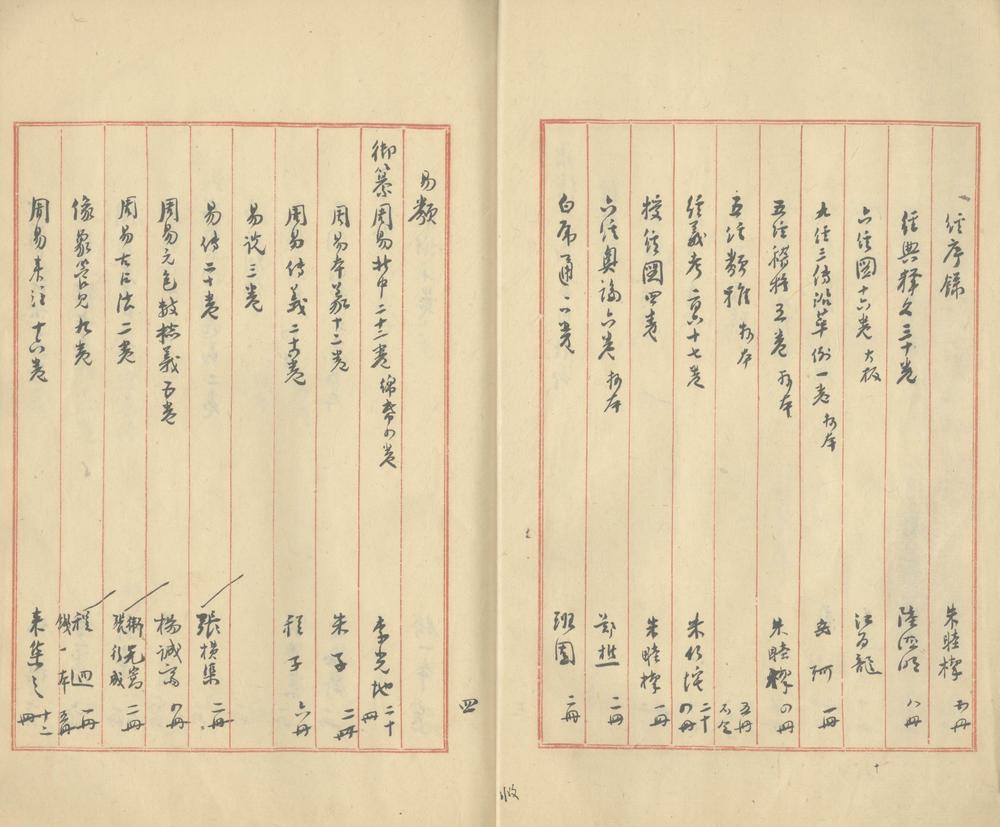 經序錄 朱睦㮮 五冊
經典釋文三十卷 陸德明 八冊
六經圖十六卷 大板 江為龍
九經三傳沿革例一卷 抄本 岳珂 一冊
五經稽疑五卷 抄本 朱睦㮮 四冊
五經類雅 抄本 五冊 不全
經義考二百六十七卷 朱彝尊 二十四冊
授經圖四卷 朱睦㮮 一冊
六經奧論六卷 抄本 鄭樵 二冊
白虎通二卷 班固 二冊
四
易類
御纂周易折中二十二卷 李光地 二十冊
周易本義十二卷 朱子 二冊
周易傳義二十卷 程子 六冊
易說三卷
易傳二十卷 張橫渠 二冊
周易元包數總義五卷 楊誠齋 四冊
周易古占法二卷 衛元嵩 張行成 二冊
像象管見九卷 程迥 一冊
錢一本 五冊
周易來注十六卷 來集之 十二冊
收